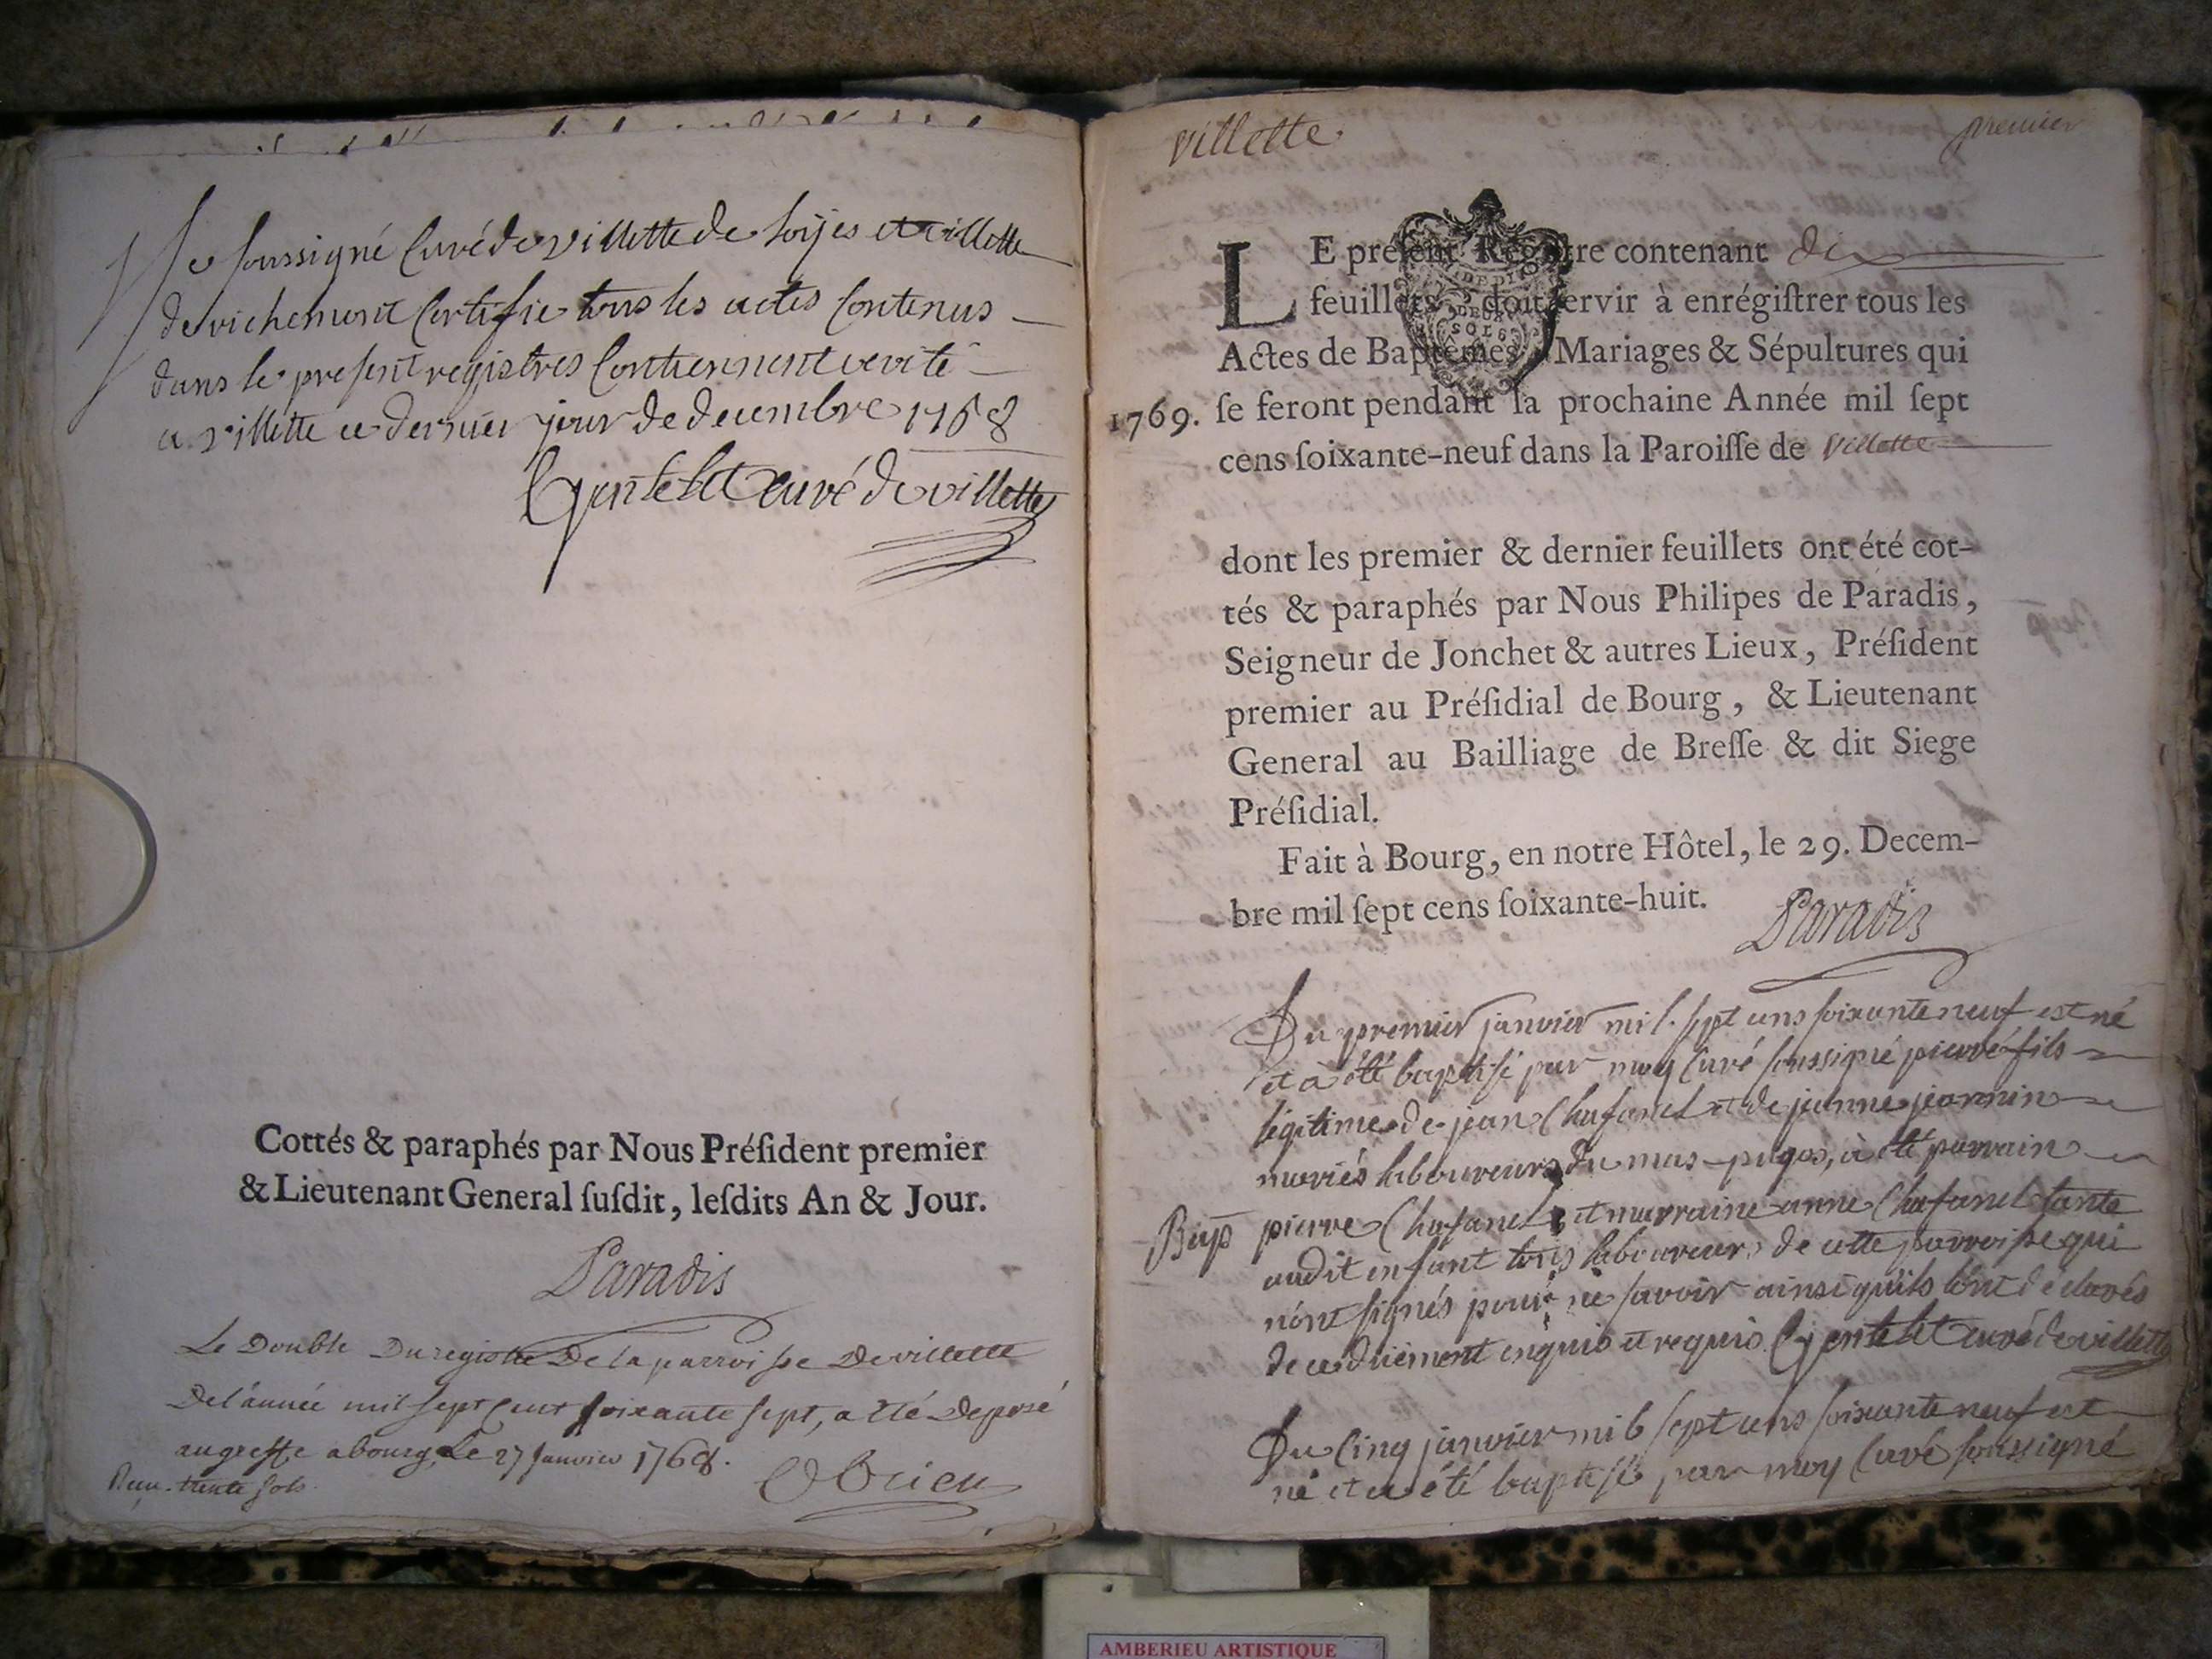 Je soussigné Curé de villette de loyes et villette
de richemont Certifie tous les actes Contenus
dans le present registres Contiennent verité
a villette ce dernier jour de decembre 1768
Gentelet curé de villette
Cottés & paraphés par Nous Préſident premier
& Lieutenant General ſuſdit, leſdits An & Jour.
Paradis
Le Double Du registre De la parroisse De villette
De l'année mil sept Cent soixante sept, a été Deposé
au greffe a bourg Le 27 Janvier 1768.
trente sols
Obrien
villette
premier
LE préſent Regiſtre contenant dix
feuillets doit ſervir à enrégiſtrer tous les
Actes de Baptêmes, Mariages & Sépultures qui
1769. ſe feront pendant la prochaine Année mil ſept
cens ſoixante-neuf dans la Paroiſſe de Villette
dont les premier & dernier feuillets ont été cot-
tés & paraphés par Nous Philipes de Paradis,
Seigneur de Jonchet & autres Lieux, Préſident
premier au Préſidial de Bourg, & Lieutenant
General au Bailliage de Breſſe & dit Siege
Préſidial.
Fait à Bourg, en notre Hôtel, le 29. Decem-
bre mil ſept cens ſoixante-huit.
Paradis
Du premier janvier mil sept cens soixante neuf est né
et a été baptisé par moy Curé soussigné pierre fils
légitime de jean Chafanel et de jeanne jeannin
mariés laboureurs du mas pugos, a été parrain
Bap pierre Chafanel et marraine anne Chafanel tante
audit enfant tous laboureurs de cette parroisse qui
n'ont signés pour ne savoir ainsi qu'ils l'ont declarés
de ce duement enquis et requis Gentelet curé de villette
Du Cinq janvier mil sept cens soixante neuf est
né et a été baptisé par moy Curé soussigné
AMBERIEU ARTISTIQUE